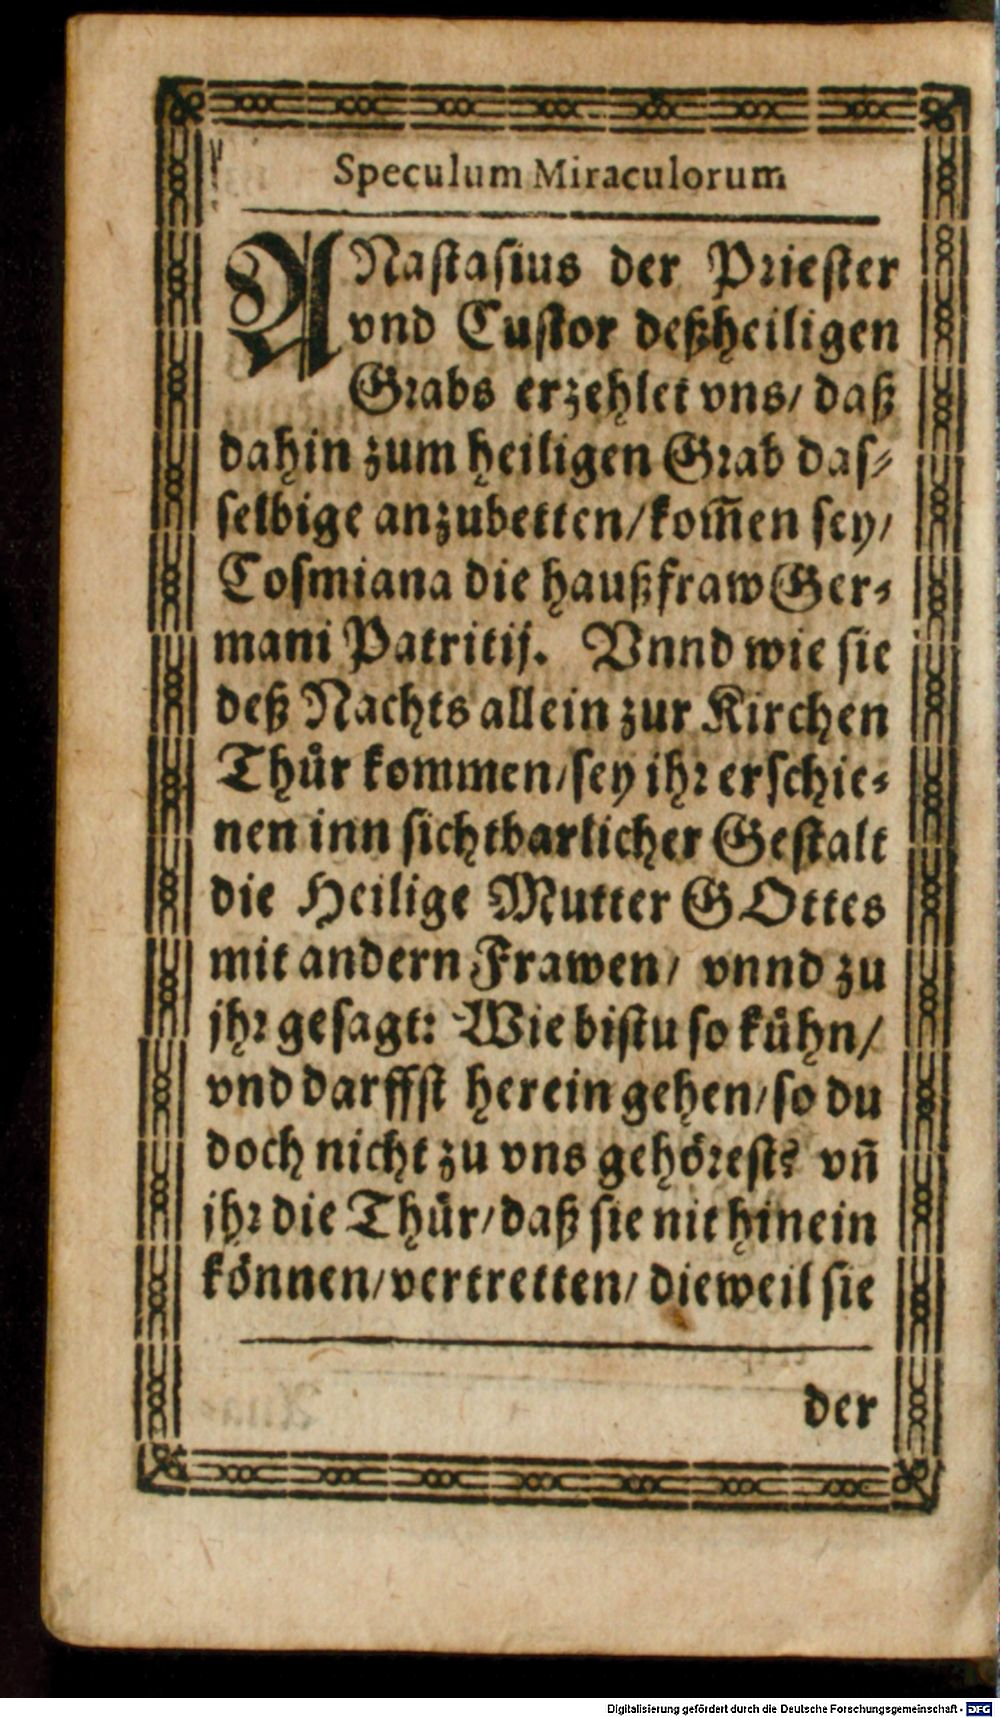 Speculum Miraculorum
ANastasius der Priester
vnd Custor deßheiligen
Grabs erzehlet vns/ daß
dahin zum heiligen Grab das-
selbige anzubetten/kom̃en sey/
Cosmiana die haußfraw Ger-
mani Patritij. Vnnd wie sie
deß Nachts allein zur Kirchen
Thür kommen/sey ihr erschie-
nen inn sichtbarlicher Gestalt
die Heilige Mutter GOttes
mit andern Frawen/ vnnd zu
jhr gesagt: Wie bistu so kühn/
vnd darffst herein gehen/so du
doch nicht zu vns gehörest? vñ
jhr die Thür/daß sie nit hinein
können/vertretten/ dieweil sie
der
Digitalisierung gefördert durch die Deutsche Forschungsgemeinschaft - DFG